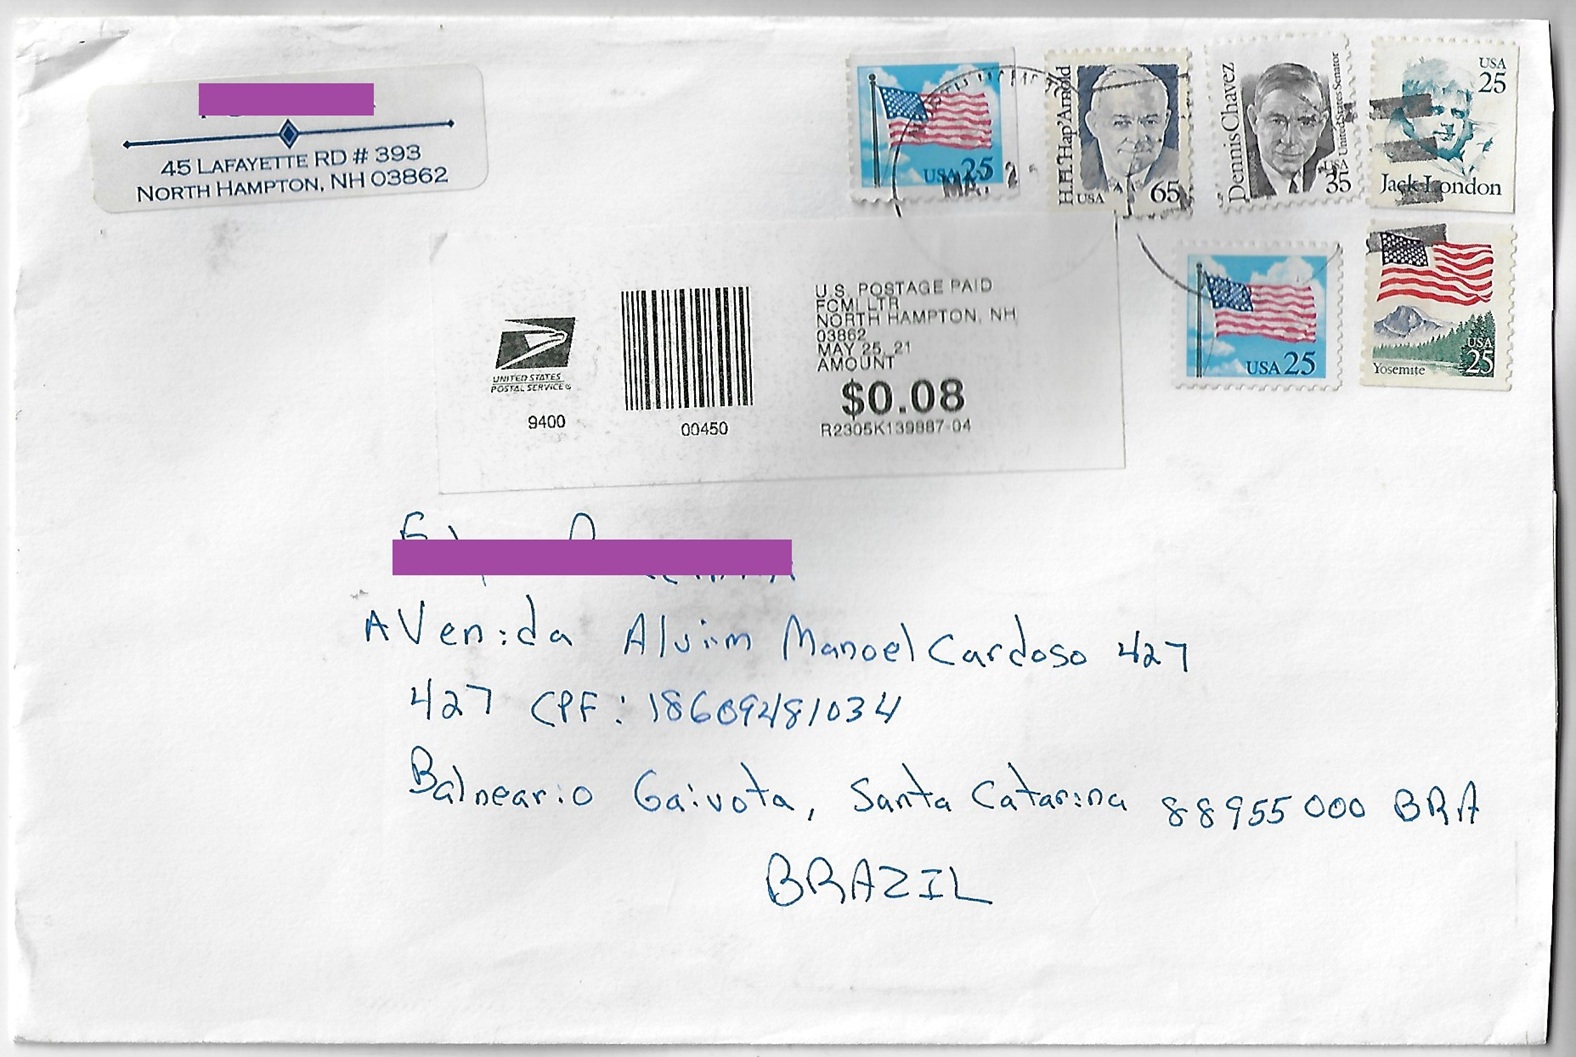 45 LAFAYETTE RD # 393
NORTH HAMPTON, NH 03862
USA 25
H.H.'Hap'Arnold
USA 65
Dennis Chavez
United States Senator
USA
35
USA
25
Jack London
USA 25
USA
25
Yosemite
UNITED STATES
POSTAL SERVICE®
9400
00450
U.S. POSTAGE PAID
FCMI LTR
NORTH HAMPTON, NH
03862
MAY 25, 21
AMOUNT
$0.08
R2305K139887-04
AVenida Alviim Manoel Cardoso 427
427 CPF: 18609481034
Balneario Gaivota, Santa Catarina 88955000 BRA
BRAZIL